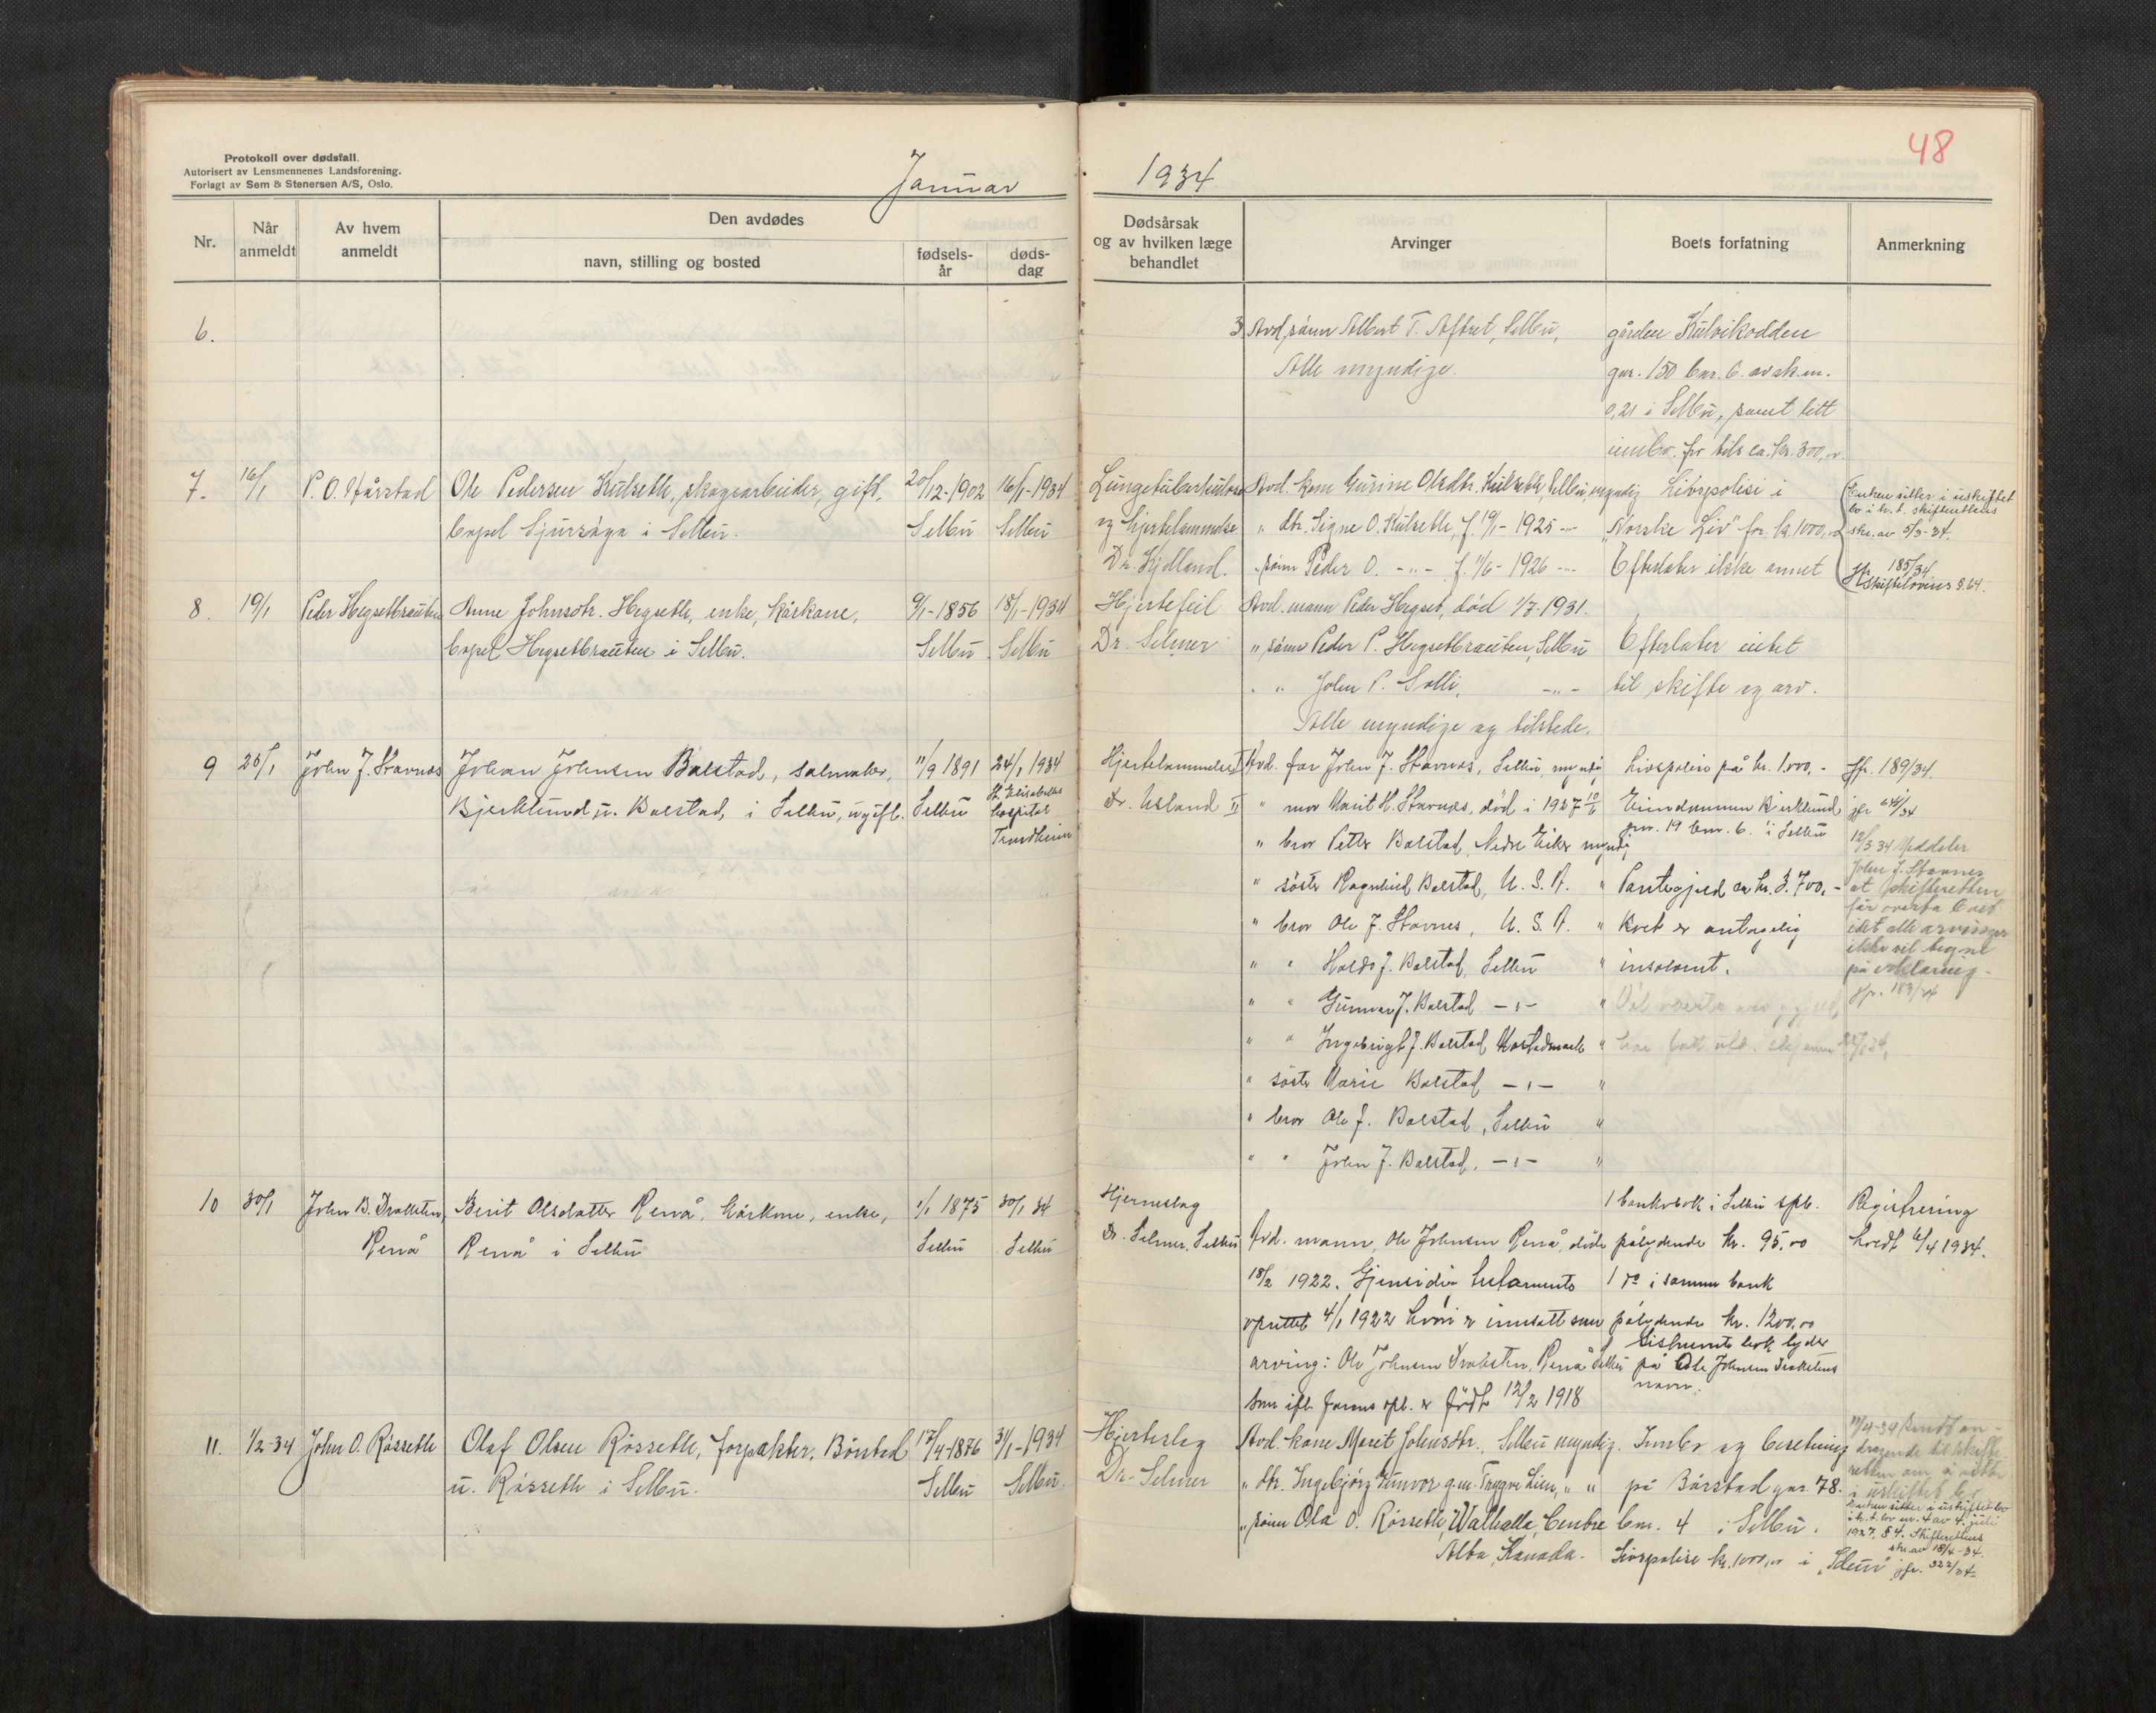 Protokoll over dødsfall.
Autorisert av Lensmennenes Landsforening.
Forlagt av Sem & Stenersen A/S, Oslo.
Januar
1934
48
Nr.
Når anmeldt
Av hvem anmeldt
Den avdødes
navn, stilling og bosted
fødsels-år
døds-dag
Dødsårsak og av hvilken læge behandlet
Arvinger
Boets forfatning
Anmerkning
6.
3 Avd. sønn Albert T. Aftret, Selbu,
Alle myndige.
gården Kulvikodden
gnr. 150 bnr. 6. av sk.m.
0,21 i Selbu, samt litt
innbo. for tils ca. kr. 300,00.
7. 16/1 P. O. Hårstad Ole Pedersen Kulseth, skogsarbeider, gift, 20/12-1902 16/1-1934
bopel Sjursåga i Selbu. Selbu Selbu
Lungetuberkulose
og hjertelammelse
Dr. Kjelland.
Avd. kone Gurine Olsdtr. Kulseth, Selbu, myndig
" dtr. Signe O. Kulseth, f. 19/1-1925 -"-
" sønn Peder O. -"- f. 11/6-1926 -"-
Livspolise i
"Norske Liv" for kr. 1000,00
Efterlater ikke annet
Enken sitter i uskiftet
bo i h.t. skifterettens
skr. av 5/3-34.
185/34
Skifteloven § 64.
8. 19/1 Peder Hegsetbrauten Anne Johnsdtr. Hegseth, enke, kårkone, 9/1-1856 18/1-1934
bopel Hegsetbrauten i Selbu. Selbu Selbu
Hjertefeil
Dr. Selmer
Avd. mann Peder Hegset, død 1/7-1931.
" sønn Peder P. Hegsetbrauten, Selbu
" " John P. Solli, -"-
Alle myndige og tilstede.
Efterlater intet
til skifte og arv.
9 25/1 John J. Stavnes Johan Johnsen Balstad, salmaker, 11/9 1891 24/1 1934
Bjerklund u. Balstad, i Selbu, ugift. Selbu St. Elisabeths
hospital
Trondheim
Hjertelammelse
Dr. Usland
I Avd. far John J. Stavnes, Selbu, myndig
II " mor Marit H. Stavnes, død i 1927
" bror Petter Balstad, Nedre Eiker myndig
" søster Ragnhild Balstad, U. S. A. "
" bror Ole J. Stavnes, U. S. A. "
" " Haldo J. Balstad, Selbu "
" " Gunnar J. Balstad -"- "
" " Ingebrigt J. Balstad Mostadmark "
" søster Marie Balstad -"- "
" bror Ole J. Balstad, Selbu "
" " John J. Balstad, -"- "
Livspolise på kr. 1.000,-
Eiendommen Bjerklund,
gnr. 19 bnr. 6. i Selbu
Pantegjeld ca kr. 3.700,-
Boet er antagelig
insolvent.
Jfr. 189/34.
12/3 34 Meddeler
John J. Stavnes
at skifteretten
får overta boet
idet alle arvinger
ikke vil tegne
på erklæring.
Jfr. 189/34
10 30/1 John B. Draksten, Berit Olsdatter Renå, kårkone, enke, 1/1 1875 30/1 34
Renå Renå i Selbu Selbu Selbu
Hjerneslag
Dr. Selmer, Selbu
Avd. mann, Ole Johnsen Renå, døde
18/2 1922. Gjensidig testamente
oprettet 4/1 1922 hvori er innsatt som
arving: Ole Johnsen Draksten, Renå Selbu
som ifl. farens opl. er født 12/2 1918
1 bankbok i Selbu spb.
pålydende kr. 95,00
1 do i samme bank
pålydende kr. 1200,00
Sistnevnte bok lyder
på Ole Johnsen Drakstens
navn.
Registrering
holdt 6/4 1934.
11. 1/2-34 John O. Røsseth Olaf Olsen Røsseth, forpakter, Børstad 17/4-1876 31/1-1934
u. Røsseth i Selbu. Selbu Selbu.
Hjerteslag
Dr. Selmer
Avd. kone Marit Johnsdtr. Selbu myndig.
" dtr. Ingebjørg Gunvor g.m. Trygve Lien, " "
" sønn Ola O. Røsseth, Walhalla, Centre
Alba, Kanada.
Innbo og besetning
på Børstad gnr. 78.
bnr. 4 i Selbu.
Livspolise kr. 1000,00 i "Idun"
Enken sitter i uskiftet bo
i h.t. lov nr. 4 av 4. juli
1927, § 4. Skifterettens
skr. av 18/4-34.
jfr. 322/34